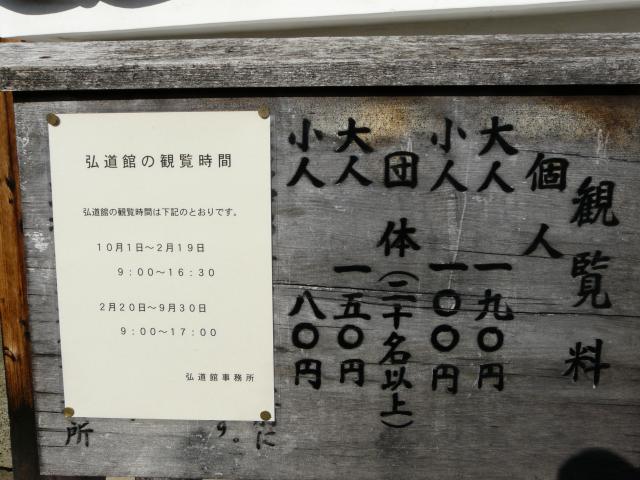 観覧料
個人
大人 一九〇円
小人 一〇〇円
団体(二十名以上)
大人 一五〇円
小人 八〇円
弘道館の観覧時間
弘道館の観覧時間は下記のとおりです。
10月1日～2月19日
9:00～16:30
2月20日～9月30日
9:00～17:00
弘道館事務所
に
。
所